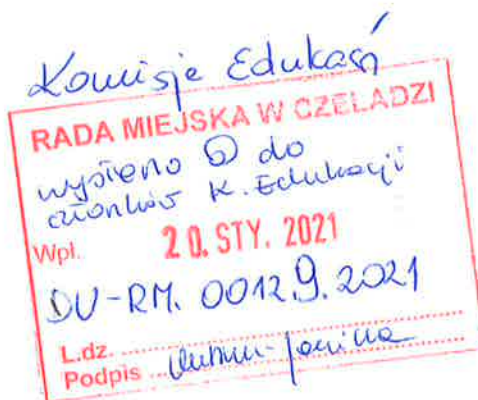 Komisje Edukacji
RADA MIEJSKA W CZELADZI
wysłano do
członków K. Edukacji
Wpł. 20. STY. 2021
DU-RM. 0012.9.2021
L.dz.
Podpis